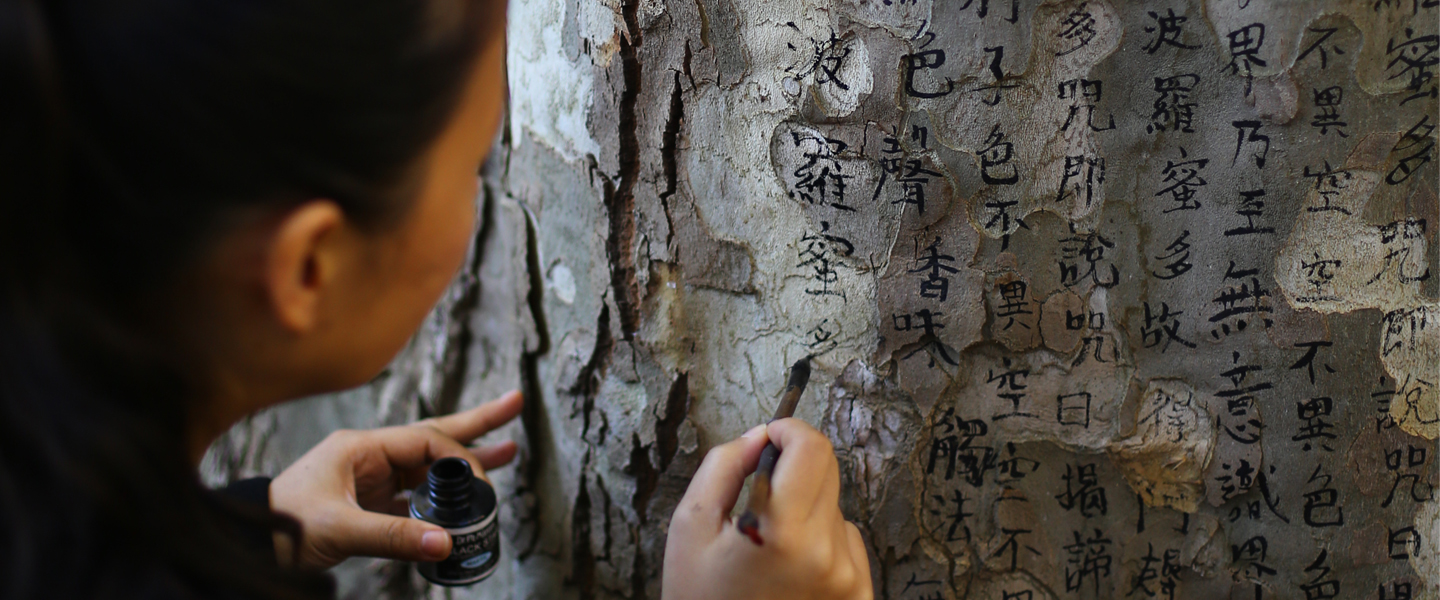 蜜多咒即說咒曰
不異空空不異色色
界乃至無意識界
波羅蜜多故得
多咒即說咒曰揭諦
子色不異空空不
色聲香味觸法無
波羅蜜多